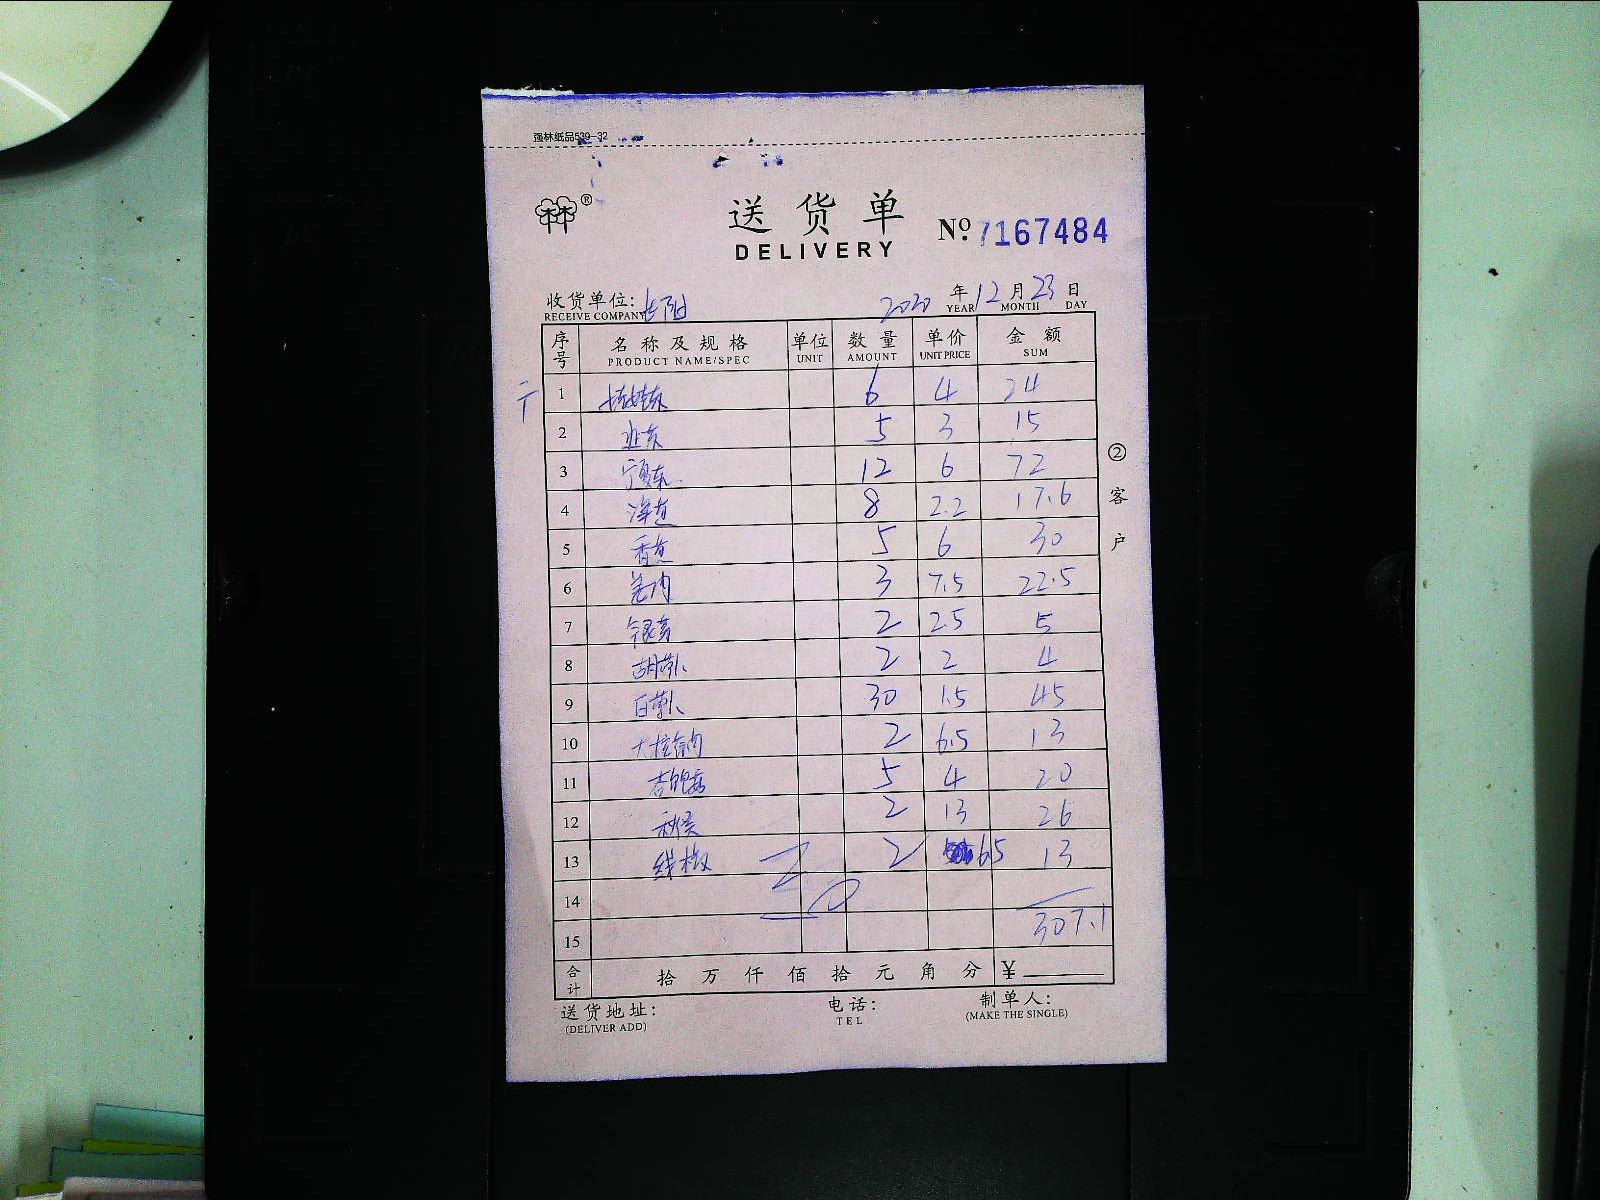 强林纸品539-32
林®
送货单
DELIVERY
№ 7167484
收货单位: 2020 年 12 月 23 日
RECEIVE COMPANY YEAR MONTH DAY
序号 名称及规格 单位 数量 单价 金额
PRODUCT NAME/SPEC UNIT AMOUNT UNIT PRICE SUM
1 6 4 24
2 5 3 15
3 12 6 72
4 8 2.2 17.6
5 香 5 6 30
6 3 7.5 22.5
7 银芽 2 2.5 5
8 胡萝卜 2 2 4
9 白萝卜 30 1.5 45
10 2 6.5 13
11 5 4 20
12 2 13 26
13 线椒 2 6.5 13
14
15 307.1
合计 拾 万 仟 佰 拾 元 角 分 ¥
送货地址: 电话: 制单人:
(DELIVER ADD) TEL (MAKE THE SINGLE)
②客户